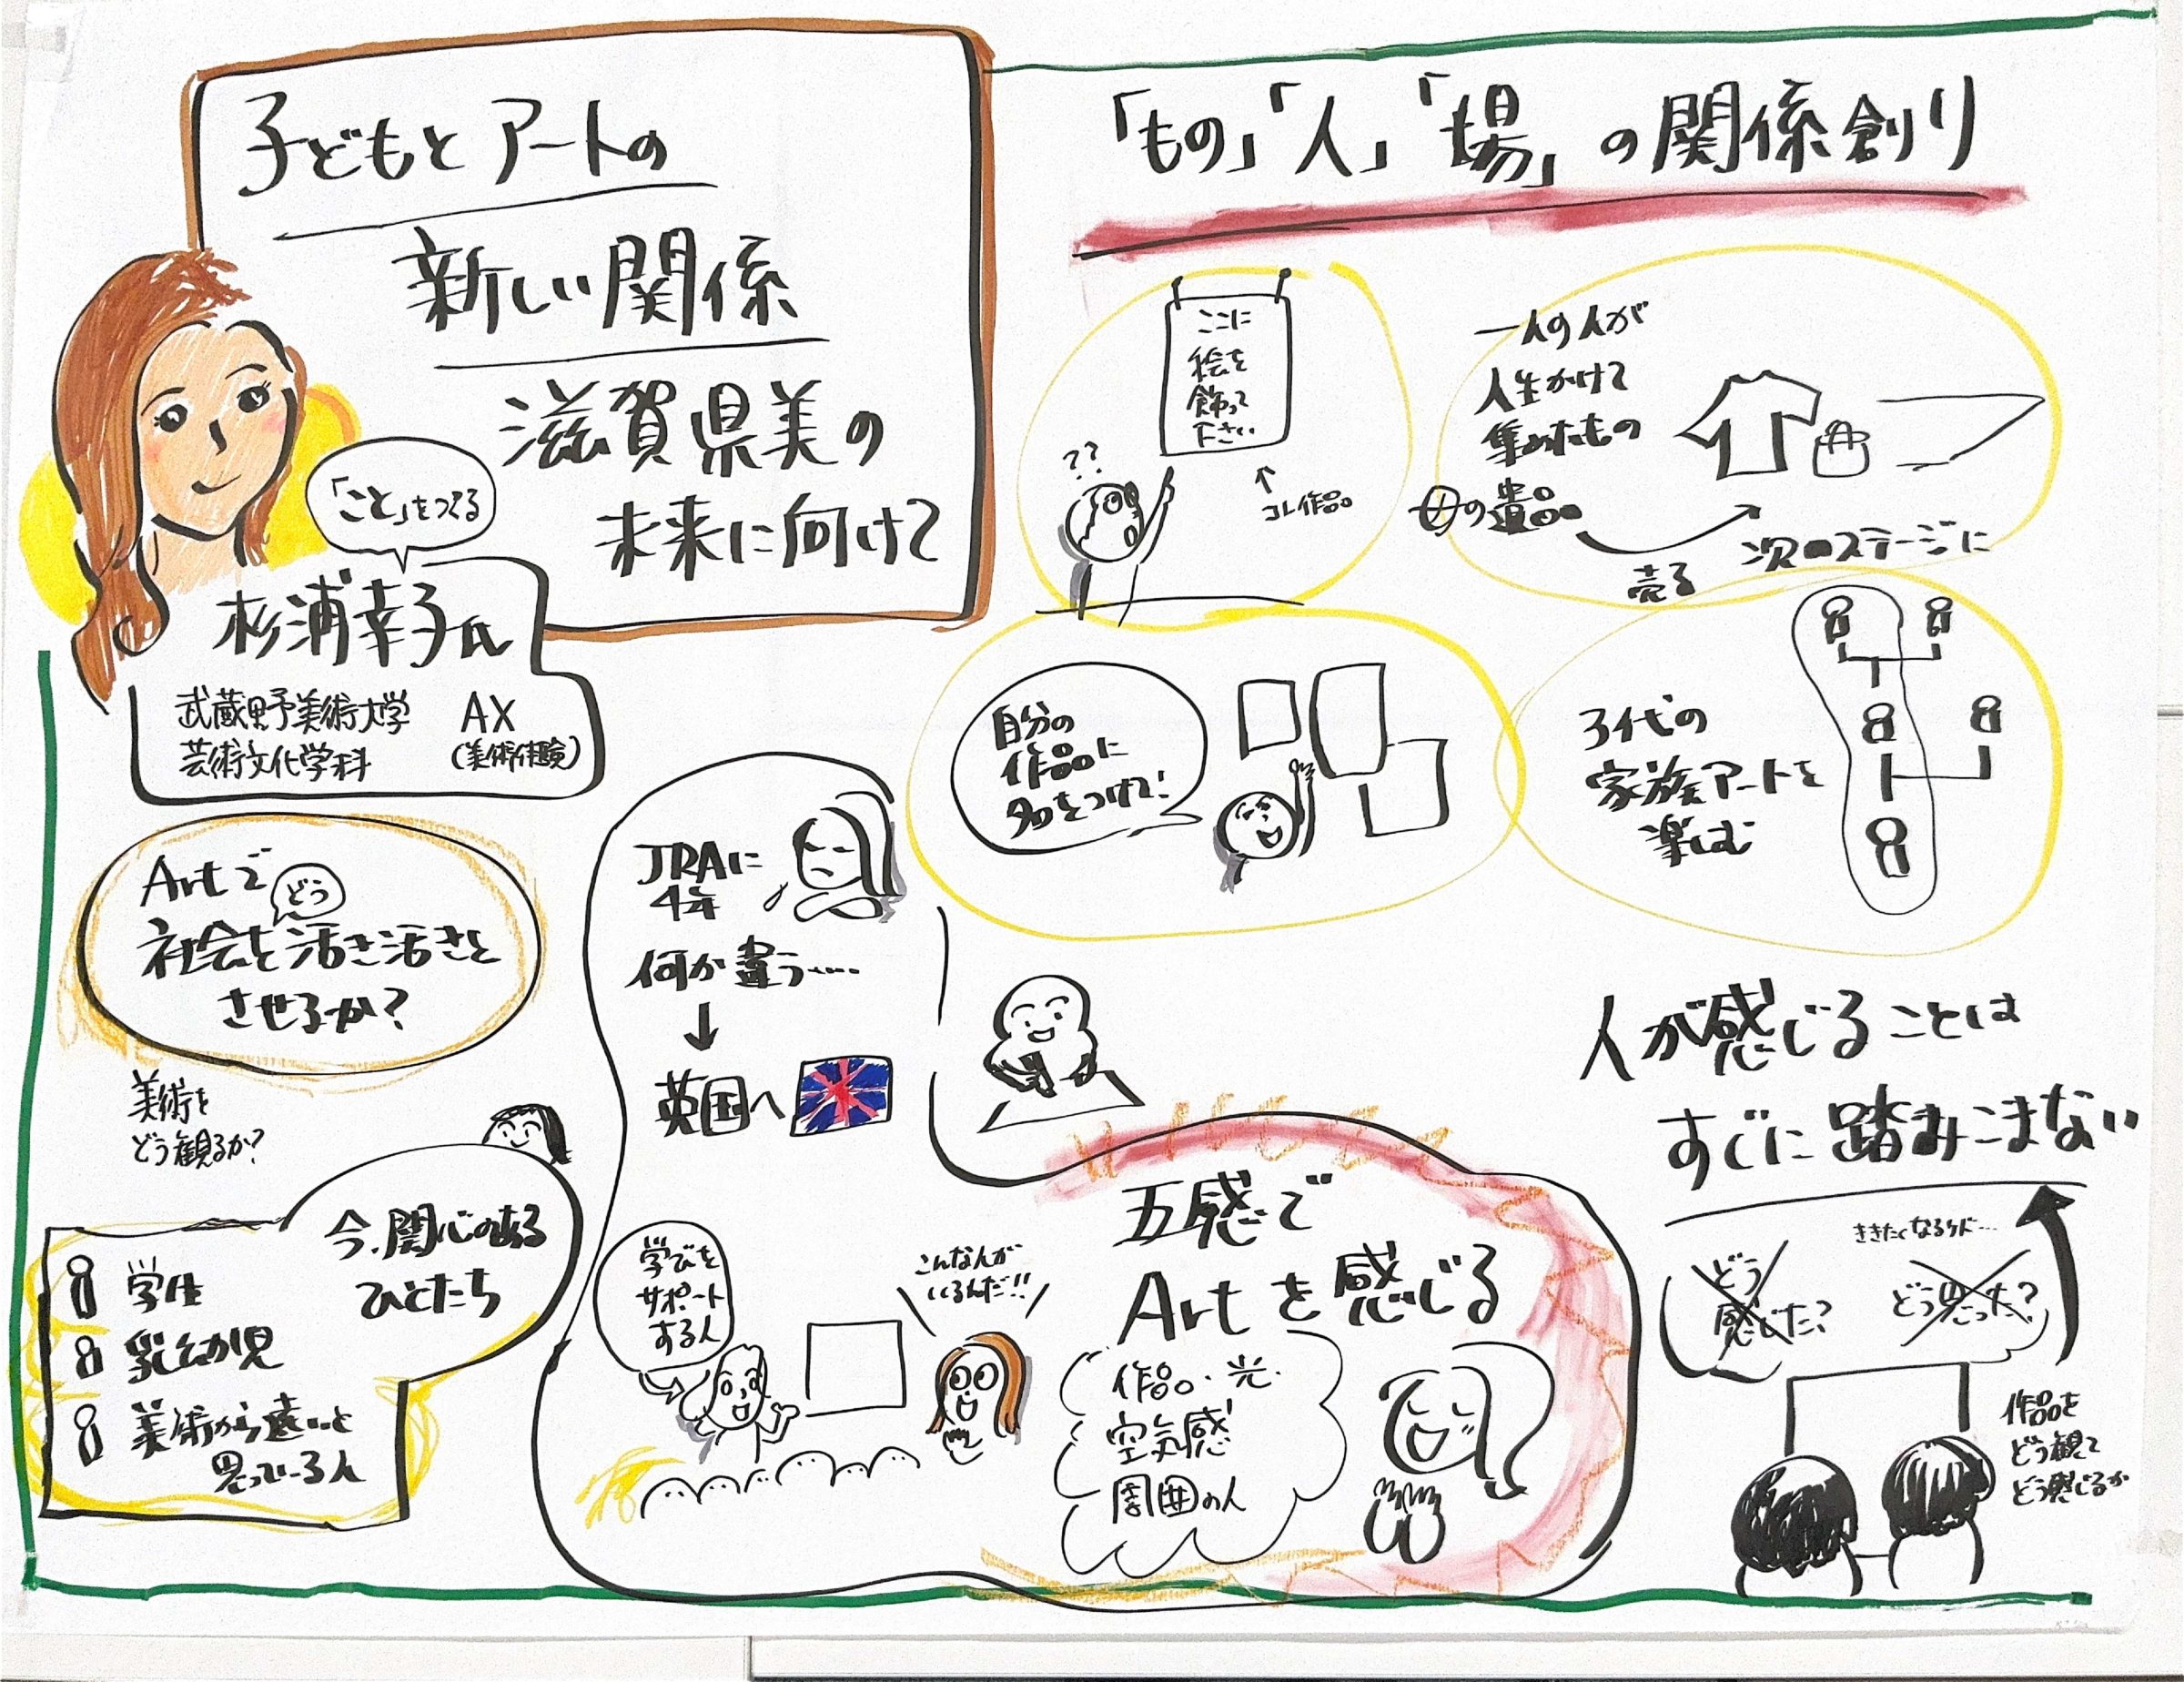 子どもとアートの
新しい関係
滋賀県美の
未来に向けて
「こと」をつくる
杉浦幸子氏
武蔵野美術大学
芸術文化学科
AX
(美術体験)
Artで
どう
社会を活き活きと
させるか?
美術を
どう観るか?
今、関心のある
ひとたち
学生
乳幼児
美術から遠いと
思っている人
JRAに
4年
何か違う……
英国へ
学びを
サポート
する人
こんな人が
いるんだ!!
五感で
Artを感じる
作品・光・
空気感
周囲の人
「もの」「人」「場」の関係創り
ここに
絵を
飾って
下さい
??
↑
コレ作品
一人の人が
人生かけて
集めたもの
母の遺品
売る
次のステージに
自分の
作品に
名をつけて!
3代の
家族アートを
楽しむ
人が感じることは
すぐに踏みこまない
ききたくなるけど…
どう
感じた?
どう思った?
作品を
どう観て
どう感じるか